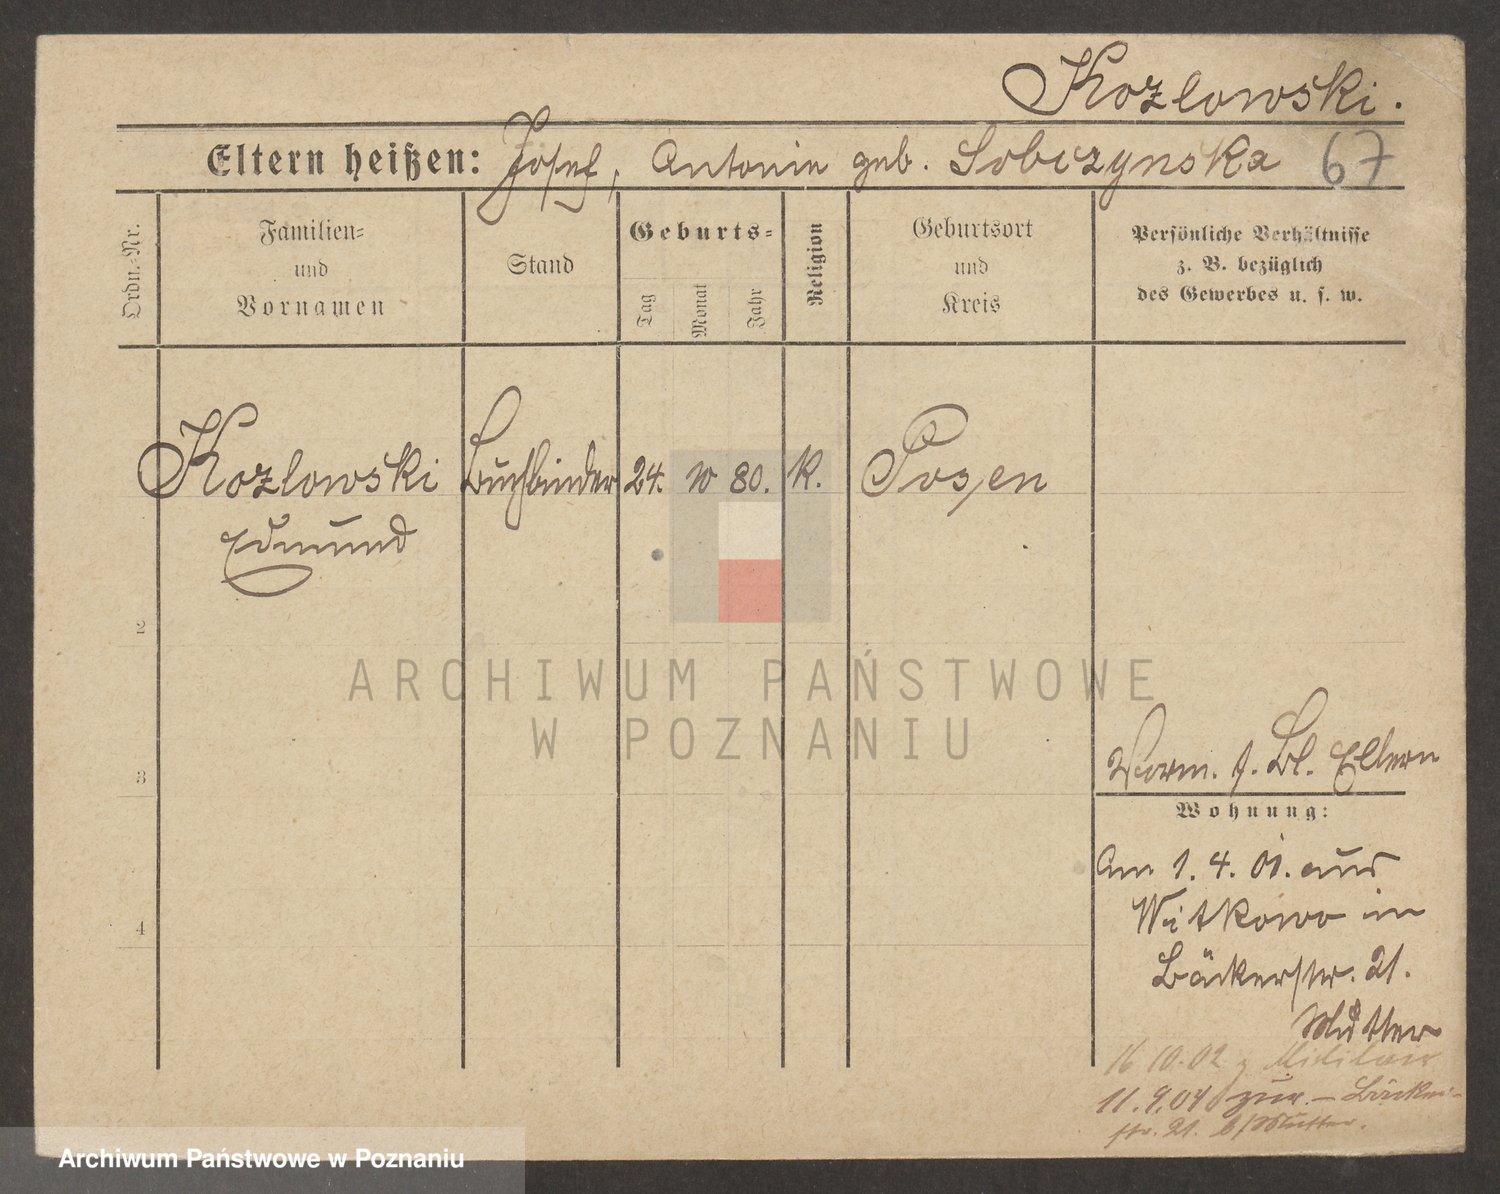 Kozlowski.
Eltern heißen: Josef, Antonie geb. Sobczynska 67
Ordn.-Nr.
Familien-
und
Vornamen
Stand
Geburts-
Tag
Monat
Jahr
Religion
Geburtsort
und
Kreis
Persönliche Verhältnisse
z. B. bezüglich
des Gewerbes u. s. w.
Kozlowski Buchbinder 24. 10 80. K. Posen
Edmund
2
3
4
Vorm. s. Bl. Eltern
Wohnung:
Am 1. 4. 01. aus
Witkowo in
Bäckerstr. 21.
Mutter
16 10.02 z Militär
11.9.04 zur. – Bäcker-
str. 21. b/Mutter.
ARCHIWUM PAŃSTWOWE
W POZNANIU
Archiwum Państwowe w Poznaniu